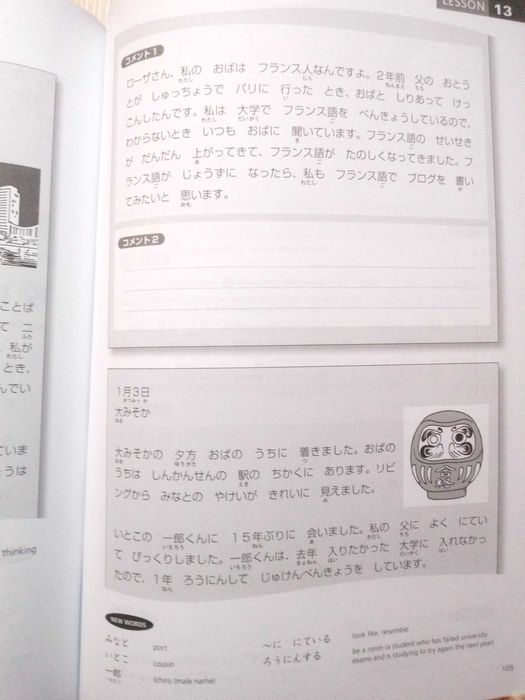 LESSON 13
コメント1
ローザさん、私の おばは フランス人なんですよ。2年前 父の おとう
とが しゅっちょうで パリに 行った とき、おばと しりあって けっ
こんしたんです。私は 大学で フランス語を べんきょうしているので、
わからないとき いつも おばに 聞いています。フランス語の せいせき
が だんだん 上がってきて、フランス語が たのしくなってきました。フ
ランス語が じょうずに なったら、私も フランス語で ブログを 書い
てみたいと 思います。
コメント2
1月3日
大みそか
大みそかの 夕方 おばの うちに 着きました。おばの
うちは しんかんせんの 駅の ちかくに あります。リビ
ングから みなとの やけいが きれいに 見えました。
いとこの 一郎くんに 15年ぶりに 会いました。私の 父に よく にてい
て びっくりしました。一郎くんは、去年 入りたかった 大学に 入れなかっ
たので、1年 ろうにんして じゅけんべんきょうを しています。
NEW WORDS
みなと port
いとこ cousin
一郎 Ichiro (male name)
〜に にている look like, resemble
ろうにんする be a ronin (a student who has failed university
exams and is studying to try again the next year)
105
ことば
て 二
、私が
とき、
んでい
ていま
うは
thinking